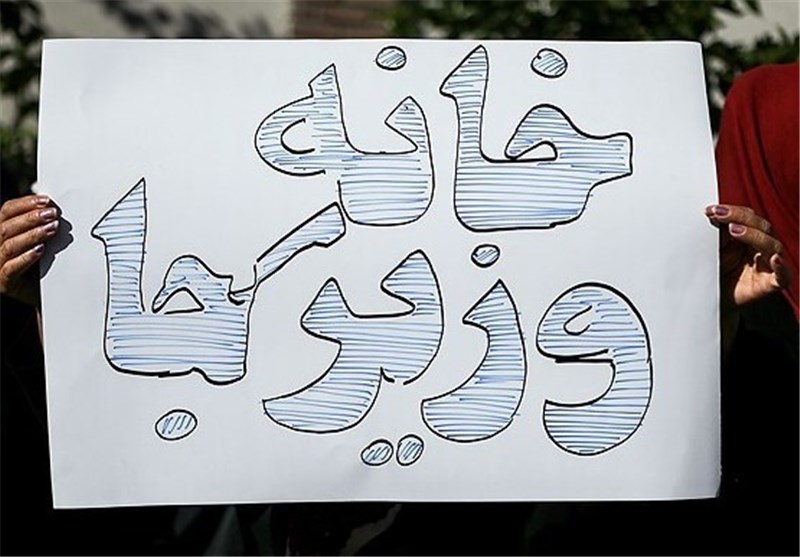 خانه
وزیر کجا